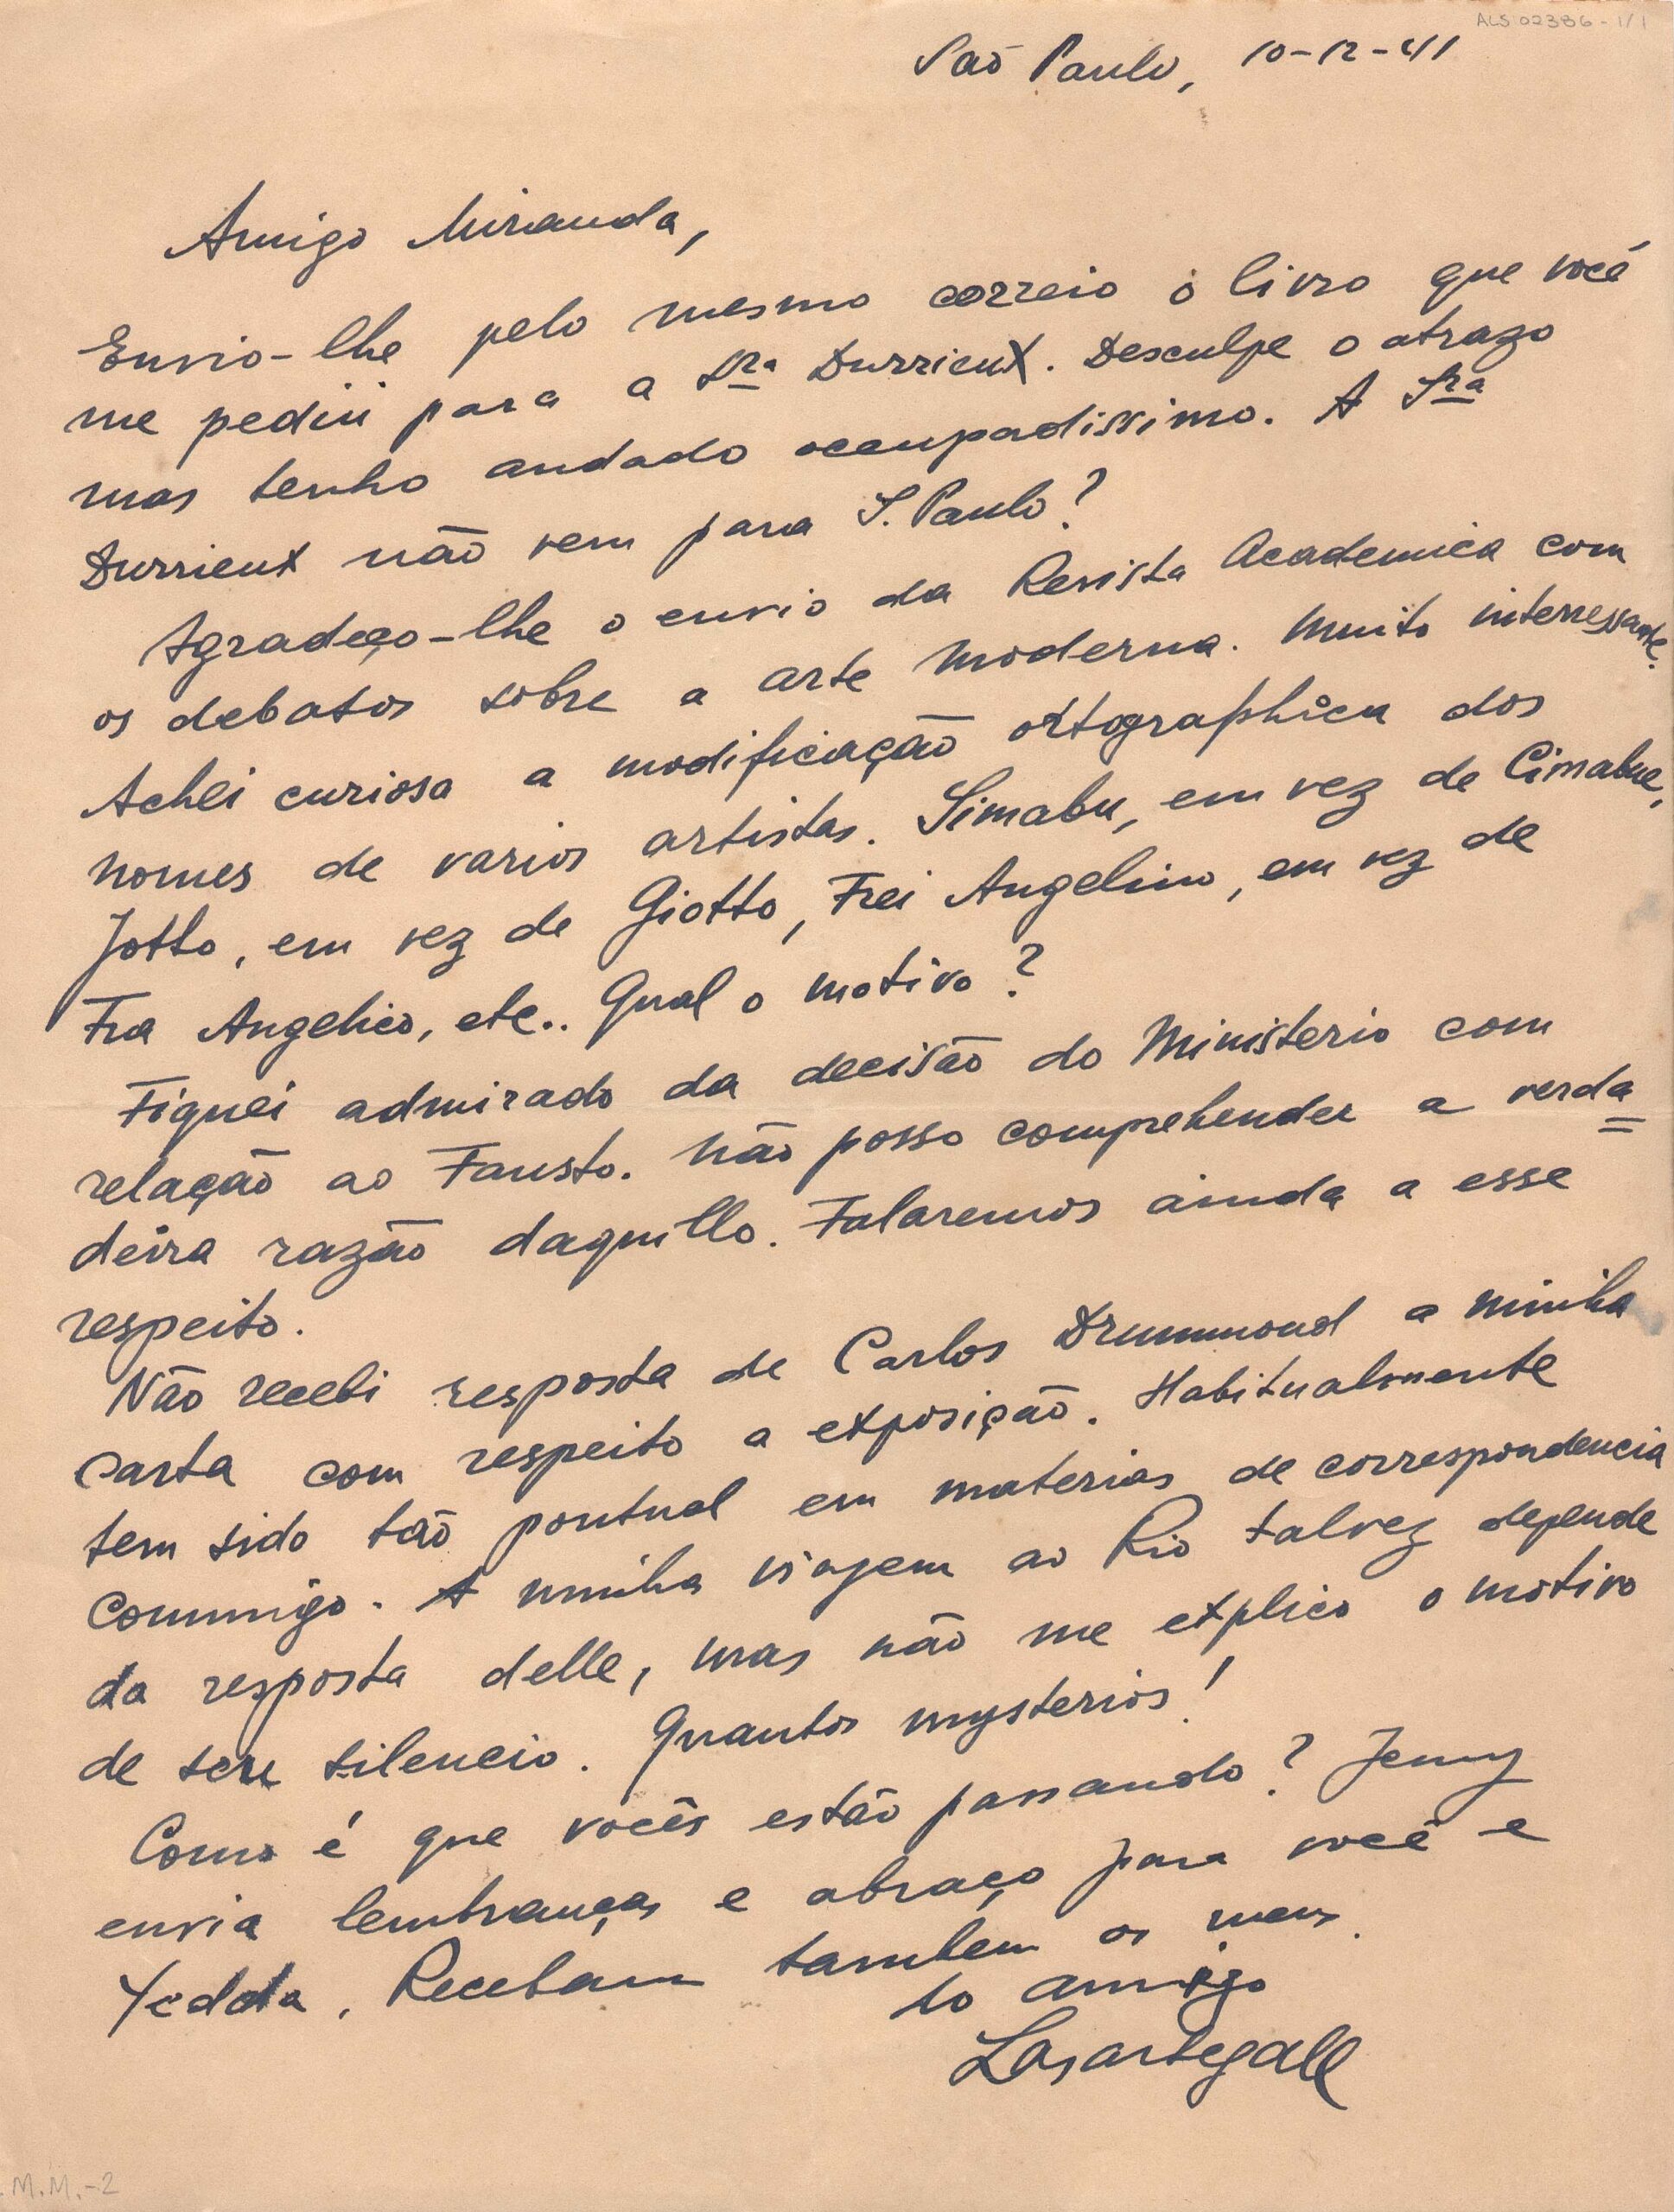 ALS 02386-1/1
São Paulo, 10-12-41
Amigo Miranda,
Envio-lhe pelo mesmo correio o livro que você
me pediu para a Sra Durrieux. Desculpe o atrazo
mas tenho andado occupadissimo. A Sra
Durrieux não vem para S. Paulo?
Agradeço-lhe o envio da Revista Academica com
os debatos sobre a arte moderna. Muito interressante.
Achei curiosa a modificação ortographica dos
nomes de varios artistas. Simabu, em vez de Cimabue,
Jotto, em vez de Giotto, Frei Angelino, em vez de
Fra Angelico, etc.. Qual o motivo?
Fiquei admirado da decisão do Ministerio com
relação ao Fausto. Não posso comprehender a verda=
deira razão daquillo. Falaremos ainda a esse
respeito.
Não recebi resposta de Carlos Drummond a minha
carta com respeito a exposição. Habitualmente
tem sido tão pontual em materias de correspondencia
commigo. A minha viagem ao Rio talvez depende
da resposta delle, mas não me explico o motivo
de seu silencio. Quantos mysterios!
Como é que vocês estão passando? Jenny
envia lembranças e abraço para você e
Yedda. Recebam tambem os meus.
do amigo
Lasar Segall
M.M.-2